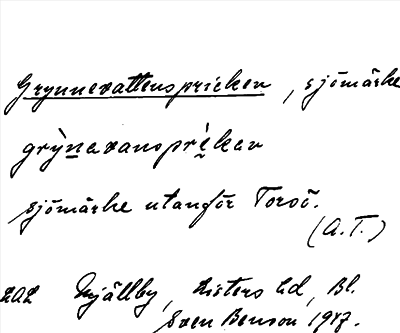 Grynnevattenspricken, sjömärke
grỳnavansprìkan
sjömärke utanför Torsö.
(A.T.)
LAL Mjällby, Listers hd, Bl.
Sven Benson 1947.